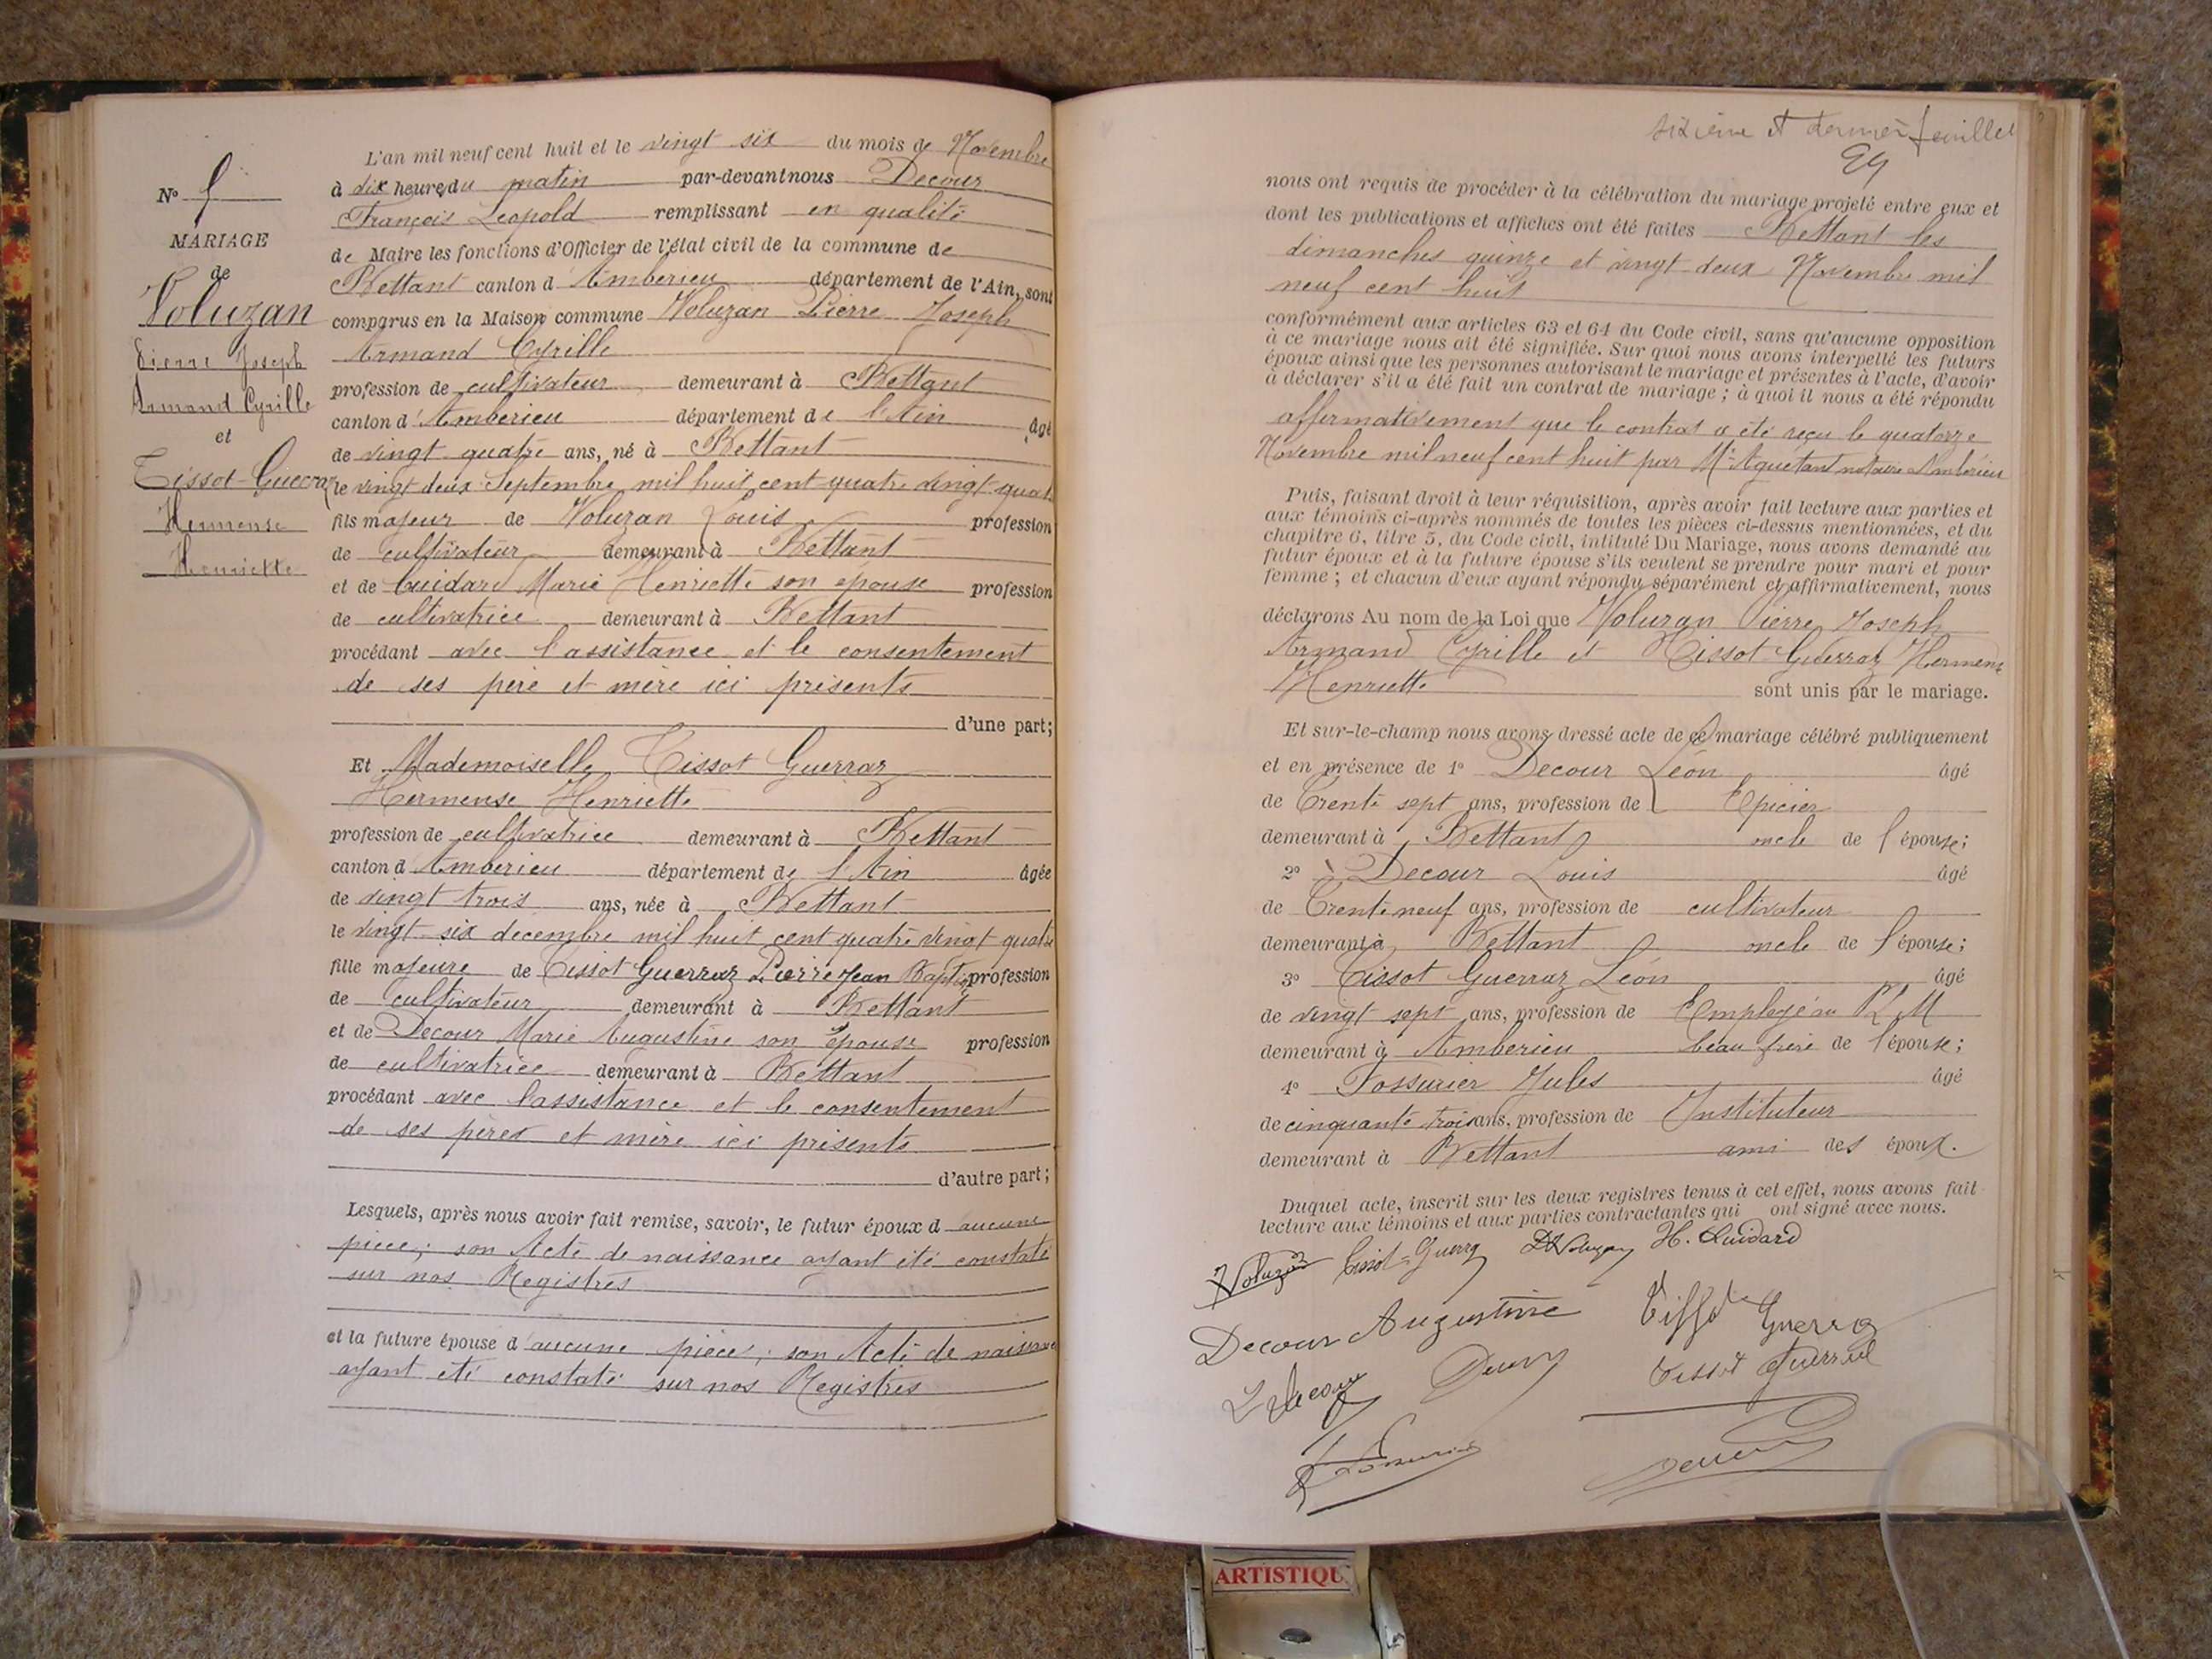 N° 5
MARIAGE
de
Voluzan
Pierre Joseph
Armand Cyrille
et
Tissot-Guerraz
Hermense
Henriette
L'an mil neuf cent huit et le vingt six du mois de Novembre
à dix heures du matin par-devant nous Decour
François Léopold remplissant en qualité
de Maire les fonctions d'Officier de l'état civil de la commune de
Bettant canton d'Amberieu département de l'Ain, sont
comparus en la Maison commune Voluzan Pierre Joseph
Armand Cyrille
profession de cultivateur demeurant à Bettant
canton d'Amberieu département de l'Ain âgé
de vingt quatre ans, né à Bettant
le vingt deux Septembre mil huit cent quatre vingt quatre
fils majeur de Voluzan Louis profession
de cultivateur demeurant à Bettant
et de Cuidard Marie Henriette son épouse profession
de cultivatrice demeurant à Bettant
procédant avec l'assistance et le consentement
de ses père et mère ici présents
d'une part;
Et Mademoiselle Tissot Guerraz
Hermense Henriette
profession de cultivatrice demeurant à Bettant
canton d'Amberieu département de l'Ain âgée
de vingt trois ans, née à Bettant
le vingt six décembre mil huit cent quatre vingt quatre
fille majeure de Tissot Guerraz Pierre Jean Baptiste profession
de cultivateur demeurant à Bettant
et de Decour Marie Augustine son épouse profession
de cultivatrice demeurant à Bettant
procédant avec l'assistance et le consentement
de ses pères et mère ici présents
d'autre part;
Lesquels, après nous avoir fait remise, savoir, le futur époux d aucune
pièce; son Acte de naissance ayant été constaté
sur nos Registres
et la future épouse d'aucune pièce; son Acte de naissance
ayant été constaté sur nos Registres
sixième et dernier feuillet
nous ont requis de procéder à la célébration du mariage projeté entre eux et
dont les publications et affiches ont été faites Bettant les
dimanches quinze et vingt deux Novembre mil
neuf cent huit
conformément aux articles 63 et 64 du Code civil, sans qu'aucune opposition
à ce mariage nous ait été signifiée. Sur quoi nous avons interpellé les futurs
époux ainsi que les personnes autorisant le mariage et présentes à l'acte, d'avoir
à déclarer s'il a été fait un contrat de mariage; à quoi il nous a été répondu
affirmativement que le contrat a été reçu le quatorze
Novembre mil neuf cent huit par Me Aguétant notaire Ambérieu
Puis, faisant droit à leur réquisition, après avoir fait lecture aux parties et
aux témoins ci-après nommés de toutes les pièces ci-dessus mentionnées, et du
chapitre 6, titre 5, du Code civil, intitulé Du Mariage, nous avons demandé au
futur époux et à la future épouse s'ils veulent se prendre pour mari et pour
femme; et chacun d'eux ayant répondu séparément et affirmativement, nous
déclarons Au nom de la Loi que Voluzan Pierre Joseph
Armand Cyrille et Tissot Guerraz Hermense
Henriette sont unis par le mariage.
Et sur-le-champ nous avons dressé acte de ce mariage célébré publiquement
et en présence de 1° Decour Léon âgé
de Trente sept ans, profession de Epicier
demeurant à Bettant oncle de l'épouse;
2° Decour Louis âgé
de Trente neuf ans, profession de cultivateur
demeurant à Bettant oncle de l'épouse;
3° Tissot Guerraz Léon âgé
de vingt sept ans, profession de Employé au PLM
demeurant à Amberieu beau frère de l'épouse;
4° Fossurier Jules âgé
de cinquante trois ans, profession de Instituteur
demeurant à Bettant ami des époux.
Duquel acte, inscrit sur les deux registres tenus à cet effet, nous avons fait
lecture aux témoins et aux parties contractantes qui ont signé avec nous.
Voluzan Tissot-Guerraz Voluzan H. Cuidard
Decour Augustine Tissot Guerraz
L Decour Decour Tissot Guerraz
ARTISTIQU